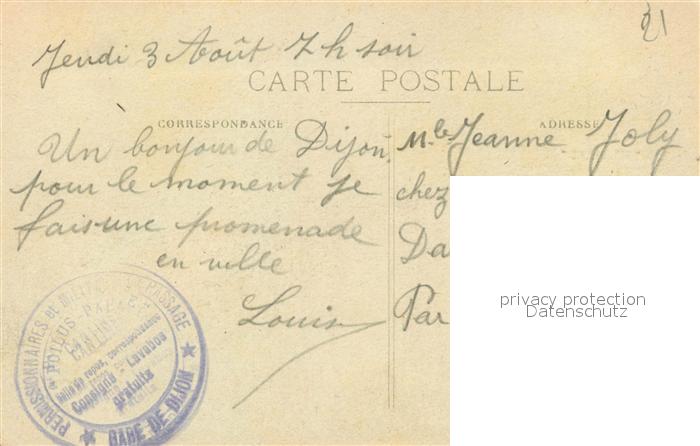 21
Jeudi 3 Août 7 h soir
CARTE POSTALE
CORRESPONDANCE
ADRESSE
Un bonjour de Dijon,
pour le moment je
fais une promenade
en ville
Louis
Mlle Jeanne Joly
chez
Da
Par
privacy protection
Datenschutz
PERMISSIONNAIRES et MILITAIRES PASSAGE
POILUS-PALACE
CANTINE
Salle de repos, correspondance
Consigne - Lavabos
gratuits
★ GARE DE DIJON ★